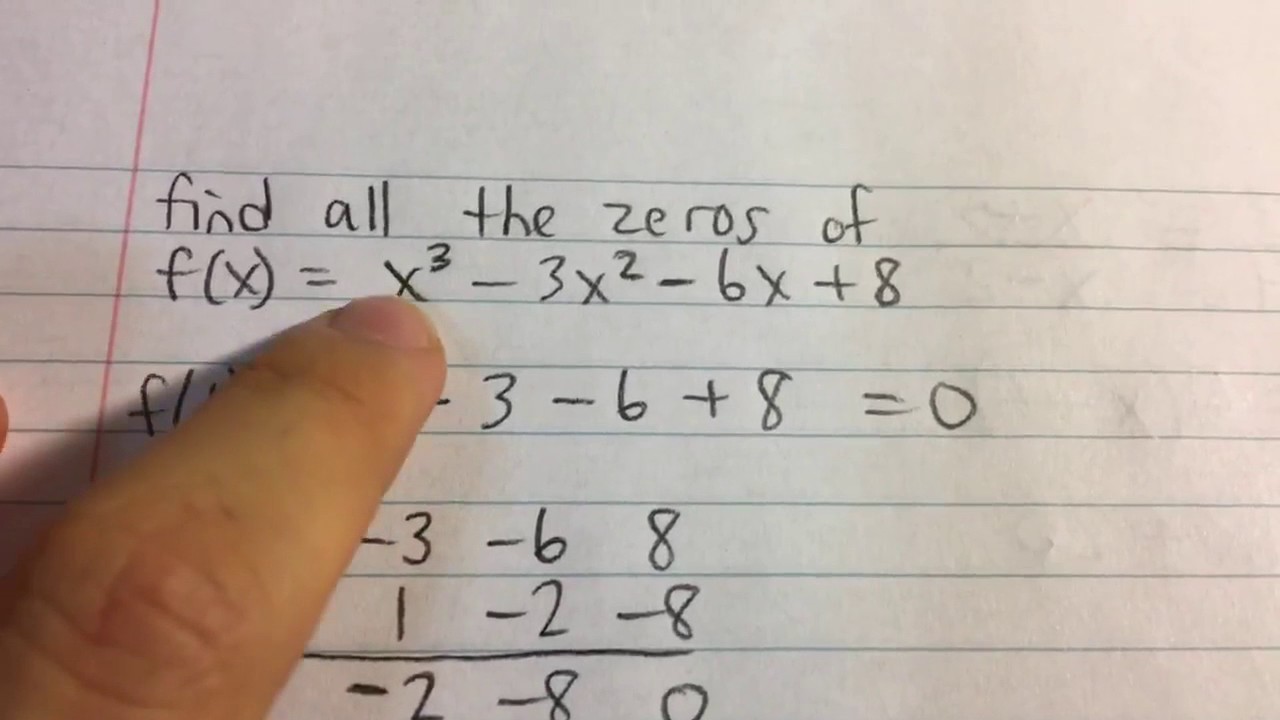 find all the zeros of
f(x) = x³ - 3x² - 6x + 8
- 3 - 6 + 8 = 0
-3 -6 8
1 -2 -8
-2 -8 0